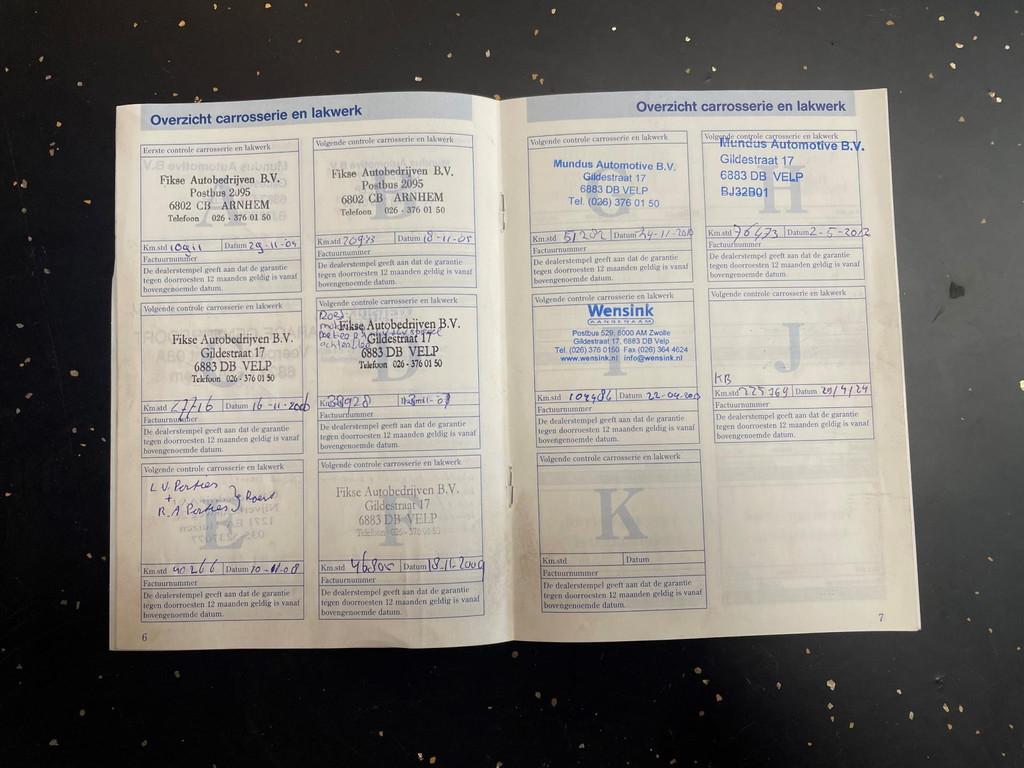 Overzicht carrosserie en lakwerk
Eerste controle carrosserie en lakwerk
A
Fikse Autobedrijven B.V.
Postbus 2095
6802 CB ARNHEM
Telefoon 026 - 376 01 50
Km.std Datum 29-11-04
Factuurnummer
De dealerstempel geeft aan dat de garantie
tegen doorroesten 12 maanden geldig is vanaf
bovengenoemde datum.
Volgende controle carrosserie en lakwerk
B
Fikse Autobedrijven B.V.
Postbus 2095
6802 CB ARNHEM
Telefoon 026 - 376 01 50
Km.std 20973 Datum 18-11-05
Factuurnummer
De dealerstempel geeft aan dat de garantie
tegen doorroesten 12 maanden geldig is vanaf
bovengenoemde datum.
Volgende controle carrosserie en lakwerk
C
Fikse Autobedrijven B.V.
Gildestraat 17
6883 DB VELP
Telefoon 026 - 376 01 50
Km.std 27716 Datum 16-11-2006
Factuurnummer
De dealerstempel geeft aan dat de garantie
tegen doorroesten 12 maanden geldig is vanaf
bovengenoemde datum.
Volgende controle carrosserie en lakwerk
D
Fikse Autobedrijven B.V.
Gildestraat 17
6883 DB VELP
Telefoon 026 - 376 01 50
38928
Factuurnummer
De dealerstempel geeft aan dat de garantie
tegen doorroesten 12 maanden geldig is vanaf
bovengenoemde datum.
Volgende controle carrosserie en lakwerk
E
L.V. Porties
+
R.A Porties } Roest
Km.std 40266 Datum 10-11-08
Factuurnummer
De dealerstempel geeft aan dat de garantie
tegen doorroesten 12 maanden geldig is vanaf
bovengenoemde datum.
Volgende controle carrosserie en lakwerk
F
Fikse Autobedrijven B.V.
Gildestraat 17
6883 DB VELP
Telefoon 026 - 376 01 50
Km.std Datum 18-11-2009
Factuurnummer
De dealerstempel geeft aan dat de garantie
tegen doorroesten 12 maanden geldig is vanaf
bovengenoemde datum.
6
Overzicht carrosserie en lakwerk
Volgende controle carrosserie en lakwerk
G
Mundus Automotive B.V.
Gildestraat 17
6883 DB VELP
Tel. (026) 376 01 50
Km.std 51202 Datum 24-11-2010
Factuurnummer
De dealerstempel geeft aan dat de garantie
tegen doorroesten 12 maanden geldig is vanaf
bovengenoemde datum.
Volgende controle carrosserie en lakwerk
H
Mundus Automotive B.V.
Gildestraat 17
6883 DB VELP
BJ32B01
Km.std 76473 Datum 2-5-2012
Factuurnummer
De dealerstempel geeft aan dat de garantie
tegen doorroesten 12 maanden geldig is vanaf
bovengenoemde datum.
Volgende controle carrosserie en lakwerk
I
Wensink
AANGENAAM
Postbus 529, 8000 AM Zwolle
Gildestraat 17, 6883 DB Velp
Tel. (026) 376 0150 Fax (026) 364 4624
www.wensink.nl info@wensink.nl
Km.std 104486 Datum
Factuurnummer
De dealerstempel geeft aan dat de garantie
tegen doorroesten 12 maanden geldig is vanaf
bovengenoemde datum.
Volgende controle carrosserie en lakwerk
J
KB
Km.std 225769 Datum 29/4/24
Factuurnummer
De dealerstempel geeft aan dat de garantie
tegen doorroesten 12 maanden geldig is vanaf
bovengenoemde datum.
Volgende controle carrosserie en lakwerk
K
Km.std Datum
Factuurnummer
De dealerstempel geeft aan dat de garantie
tegen doorroesten 12 maanden geldig is vanaf
bovengenoemde datum.
7